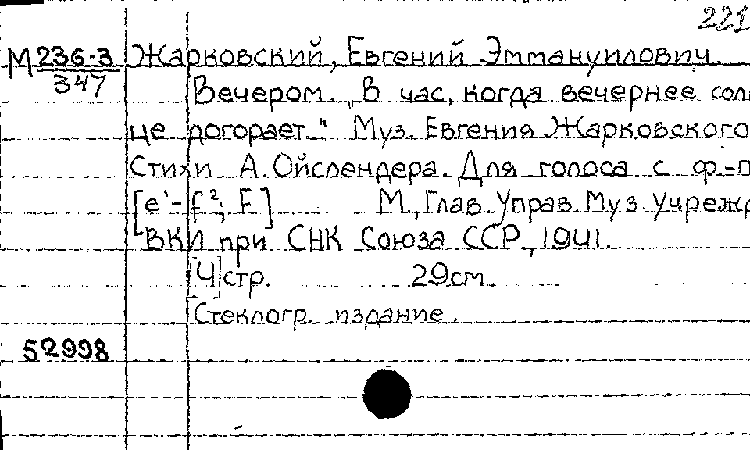 221
М 236-3 Жарковский, Евгений Эммануилович.
347
Вечером. „В час, когда вечернее солн
це догорает." Муз. Евгения Жарковского
Стихи А. Ойслендера. Для голоса с ф.-п
[e¹-f²; F] М., Глав. Управ. Муз. Учрежд
ВКИ при СНК Союза ССР, 1941.
[4] стр. 29см.
Стеклогр. издание.
52998